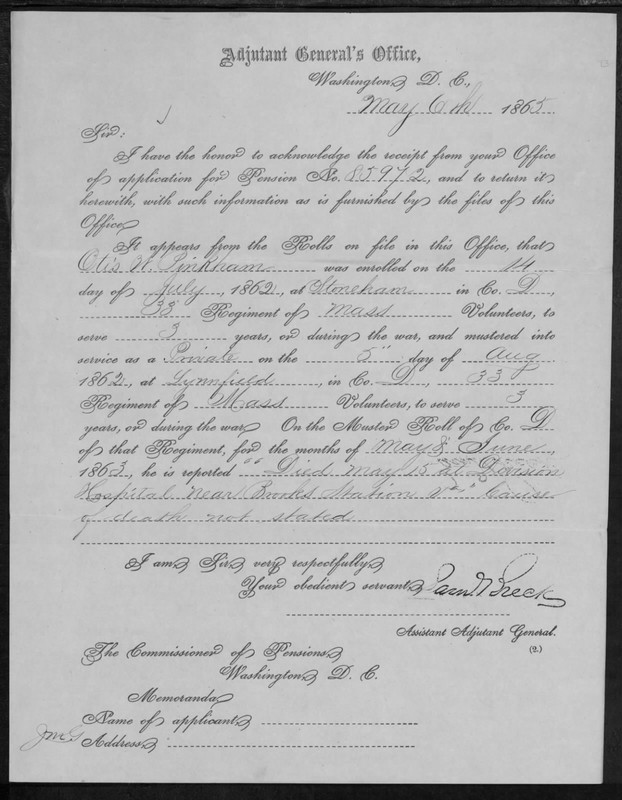 Adjutant General's Office,
Washington, D. C.,
May 6th 1865.
Sir:
I have the honor to acknowledge the receipt from your Office
of application for Pension No. 85972, and to return it
herewith, with such information as is furnished by the files of this
Office.
It appears from the Rolls on file in this Office, that
Otis W. Pinkham was enrolled on the 14
day of July, 1862, at Stoneham in Co. D,
33 Regiment of Mass Volunteers, to
serve 3 years, or during the war, and mustered into
service as a Private on the 5" day of Aug
1862, at Lynnfield, in Co. D, 33
Regiment of Mass Volunteers, to serve 3
years, or during the war. On the Muster Roll of Co. D
of that Regiment, for the months of May & June,
1863, he is reported "Died May 15 at Division
Hospital near Brooks Station Va" Cause
of death not stated
I am, Sir, very respectfully,
Your obedient servant,
Saml Breck
Assistant Adjutant General.
(2.)
The Commissioner of Pensions,
Washington, D. C.
Memoranda.
Name of applicant,
Address,